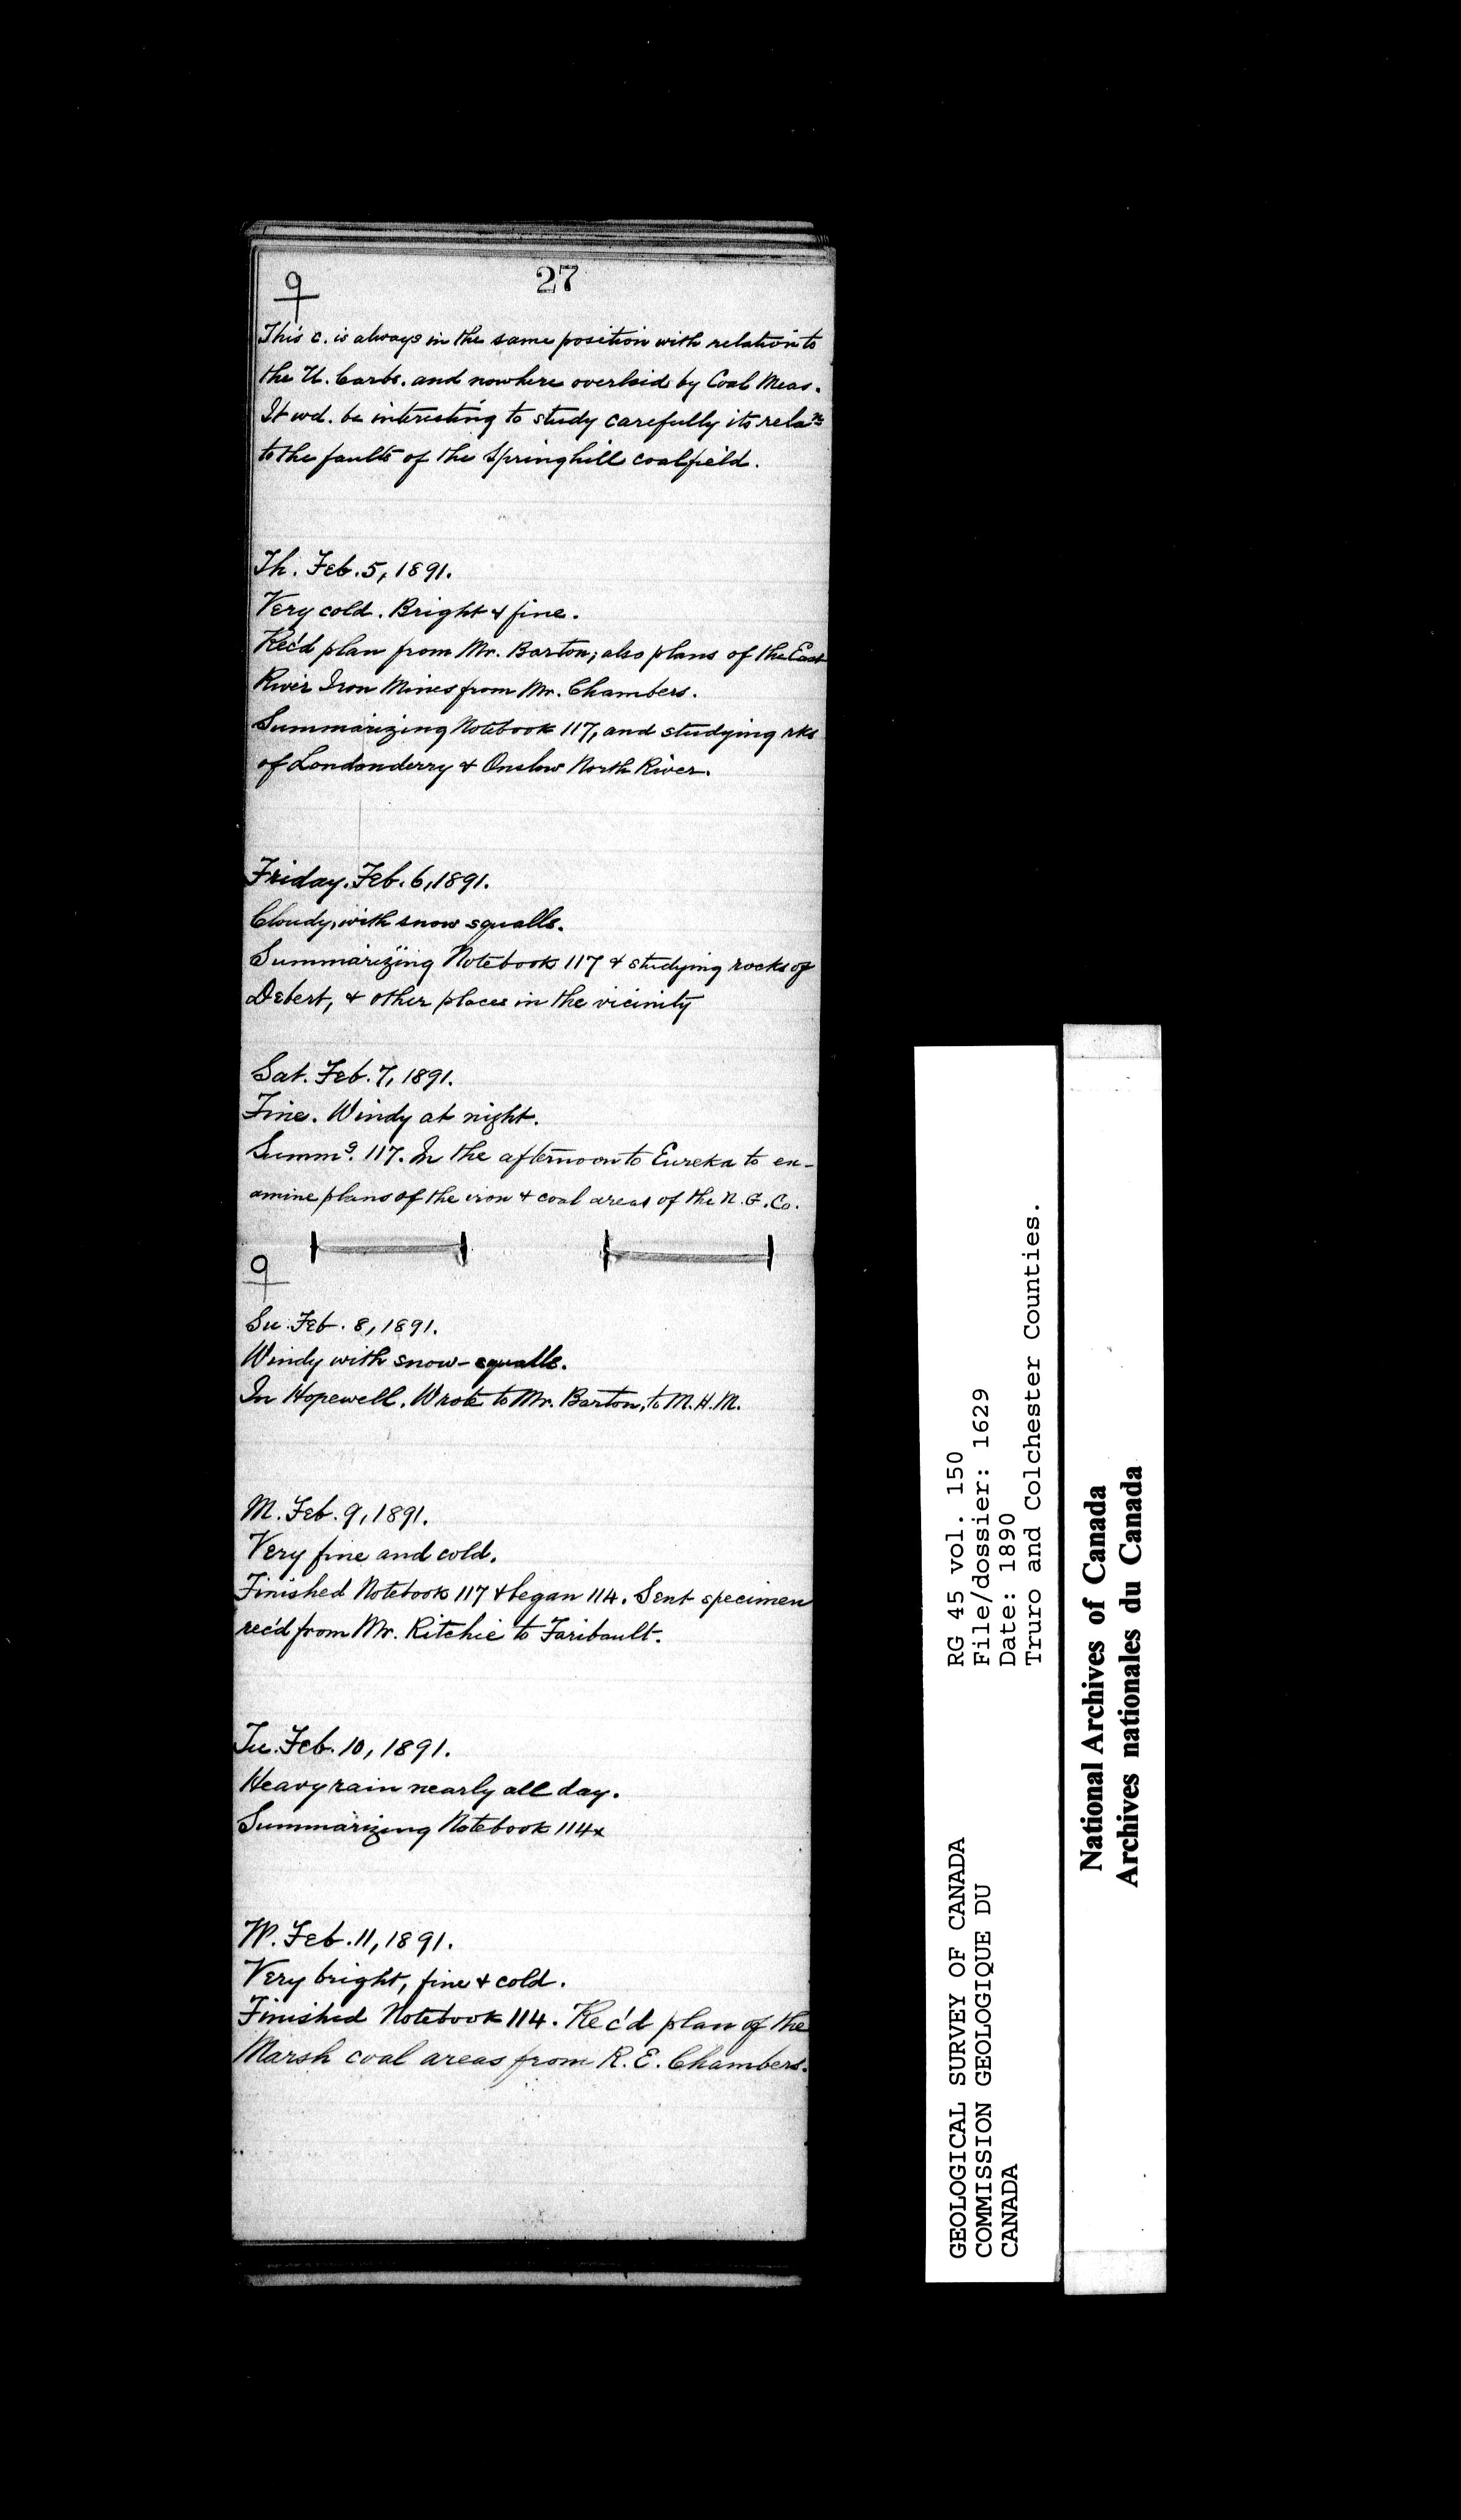 27
9
This c. is always in the same position with relation to
the U. Carbs. and nowhere overlaid by Coal Meas.
It wd. be interesting to study carefully its relaⁿˢ
to the faults of the Springhill coalfield.
Th. Feb. 5, 1891.
Very cold. Bright & fine.
Rec'd plan from Mr. Barton; also plans of the East
River Iron Mines from Mr. Chambers.
Summarizing Notebook 117, and studying rks
of Londonderry & Onslow North River.
Friday. Feb. 6, 1891.
Cloudy, with snow squalls.
Summarizing Notebook 117 & studying rocks of
Debert, & other places in the vicinity
Sat. Feb. 7, 1891.
Fine. Windy at night.
Summᵍ. 117. In the afternoon to Eureka to ex-
amine plans of the iron & coal areas of the N. G. Co.
9
Su. Feb. 8, 1891.
Windy with snow-squalls.
In Hopewell. Wrote to Mr. Barton, to M. H. M.
M. Feb. 9, 1891.
Very fine and cold.
Finished Notebook 117 & began 114. Sent specimen
rec'd from Mr. Ritchie to Faribault.
Tu. Feb. 10, 1891.
Heavy rain nearly all day.
Summarizing Notebook 114x
W. Feb. 11, 1891.
Very bright, fine & cold.
Finished Notebook 114. Rec'd plan of the
Marsh coal areas from R. E. Chambers.
GEOLOGICAL SURVEY OF CANADA
COMMISSION GEOLOGIQUE DU
CANADA
RG 45 vol. 150
File/dossier: 1629
Date: 1890
Truro and Colchester Counties.
National Archives of Canada
Archives nationales du Canada